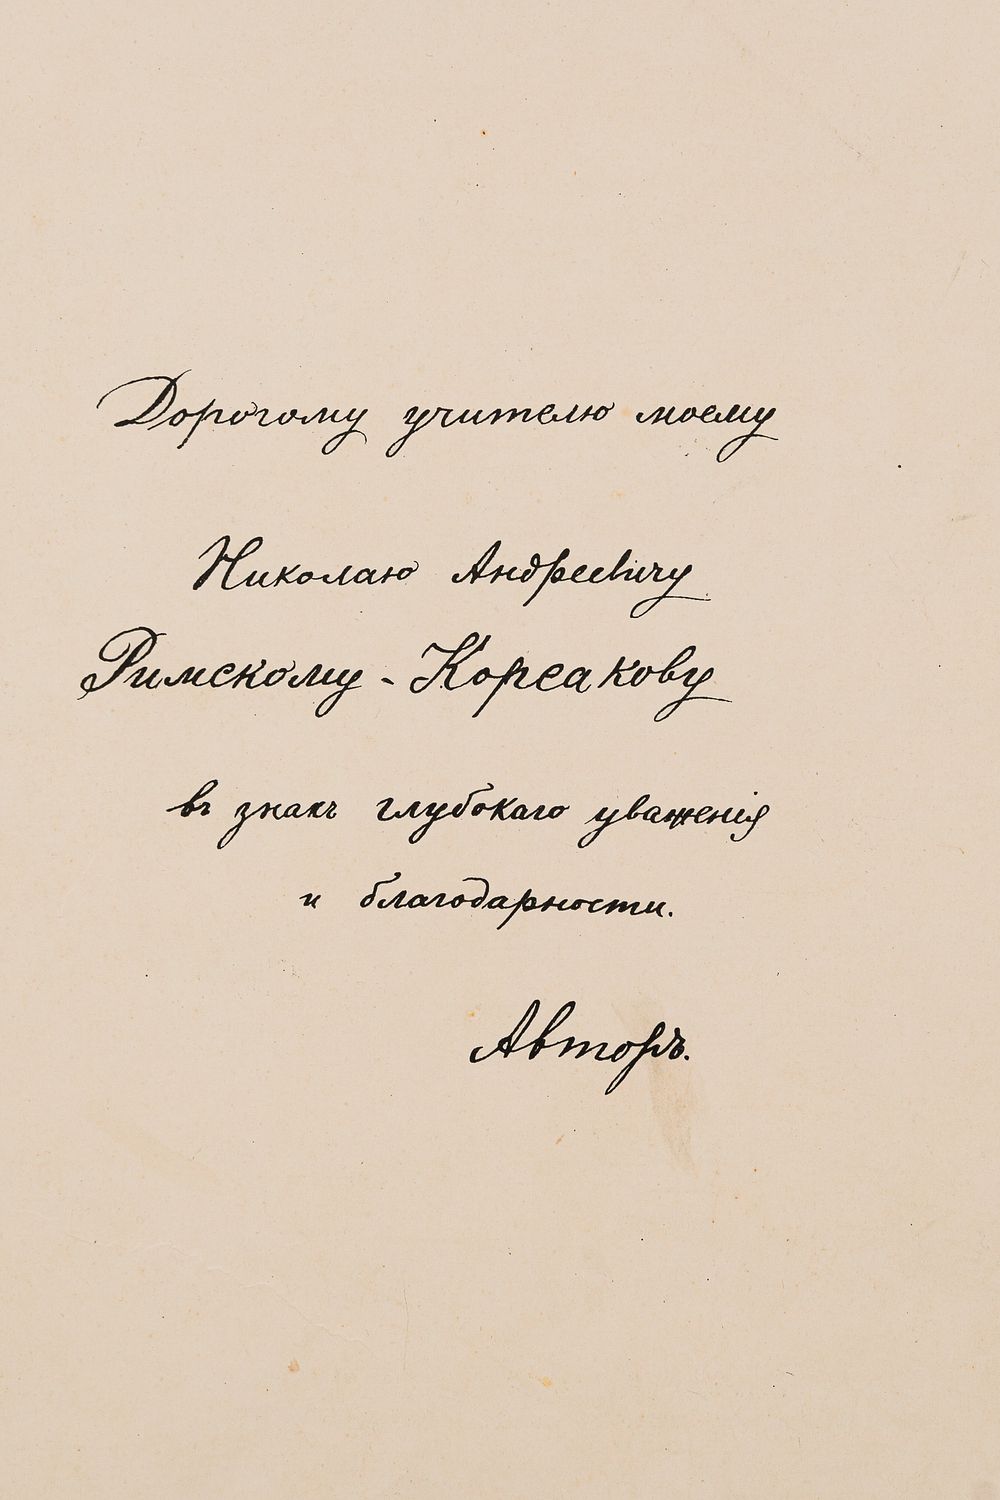 Дорогому учителю моему
Николаю Андреевичу
Римскому-Корсакову
въ знакъ глубокаго уваженія
и благодарности.
Авторъ.